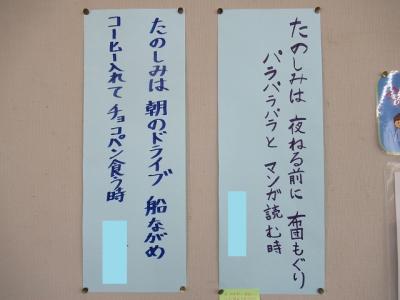 たのしみは 夜ねる前に 布団もぐり
パラパラパラと マンガ読む時
たのしみは 朝のドライブ 船ながめ
コーヒー入れて チョコパン食う時